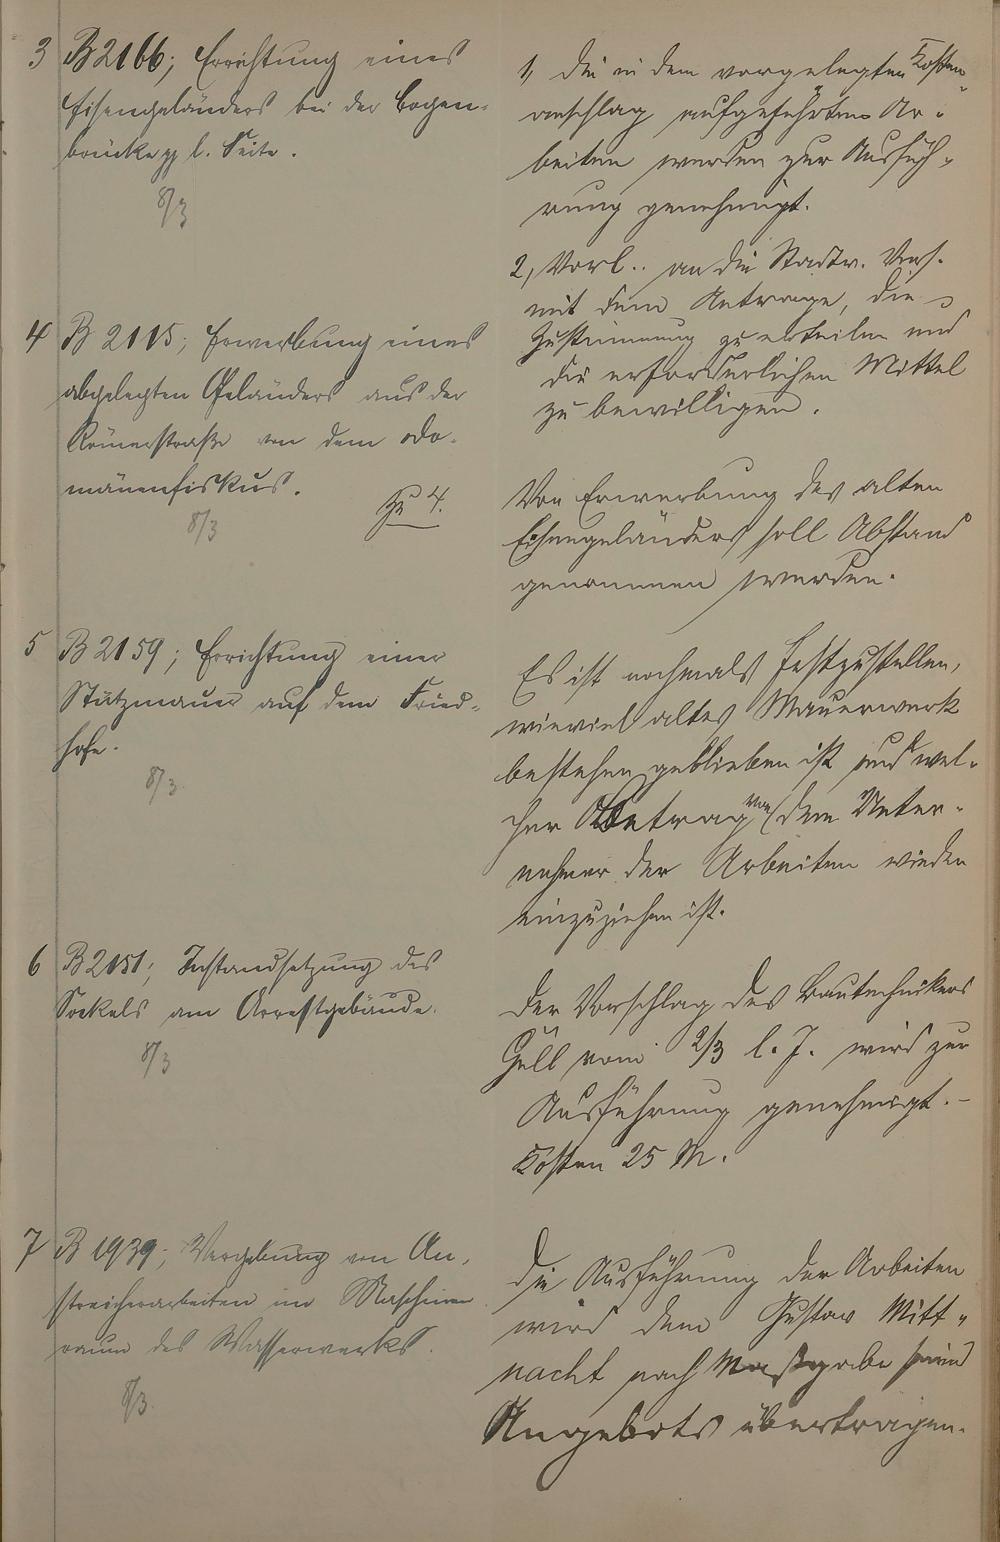 3 B 2166; Errichtung eines
Eisengeländers bei der Bogen-
brücke l. Seite.
8/3
1, Die in dem vorgelegten Kosten-
anschlag aufgeführten Ar-
beiten werden zur Ausfüh-
rung genehmigt.
2, Vorl. an die Stadtv. Vers.
mit dem Antrage, die
Zustimmung zu erteilen und
die erforderlichen Mittel
zu bewilligen.
4 B 2115; Erwerbung eines
abgelegten Geländers aus der
Römerstraße von dem Do-
mänenfiskus.
8/3
Zu 4.
Von Erwerbung des alten
Eisengeländers soll Abstand
genommen werden.
5 B 2159; Errichtung einer
Stützmauer auf dem Fried-
hofe.
8/3
Es ist nochmals festzustellen,
wieviel altes Mauerwerk
bestehen geblieben ist und wel-
cher Betrag von dem Unter-
nehmer der Arbeiten wieder
einzuziehen ist.
6 B 2151; Instandsetzung des
Sockels am Arrestgebäude.
8/3
Der Vorschlag des Bautechnikers
Güll vom 2/3 l. J. wird zur
Ausführung genehmigt. –
Kosten 25 M.
7 B 1939; Vergebung von An-
streicherarbeiten im Maschinen
raum des Wasserwerks.
8/3
Die Ausführung der Arbeiten
wird dem Gustav Mitt-
nacht nach Maßgabe seines
Angebots übertragen.